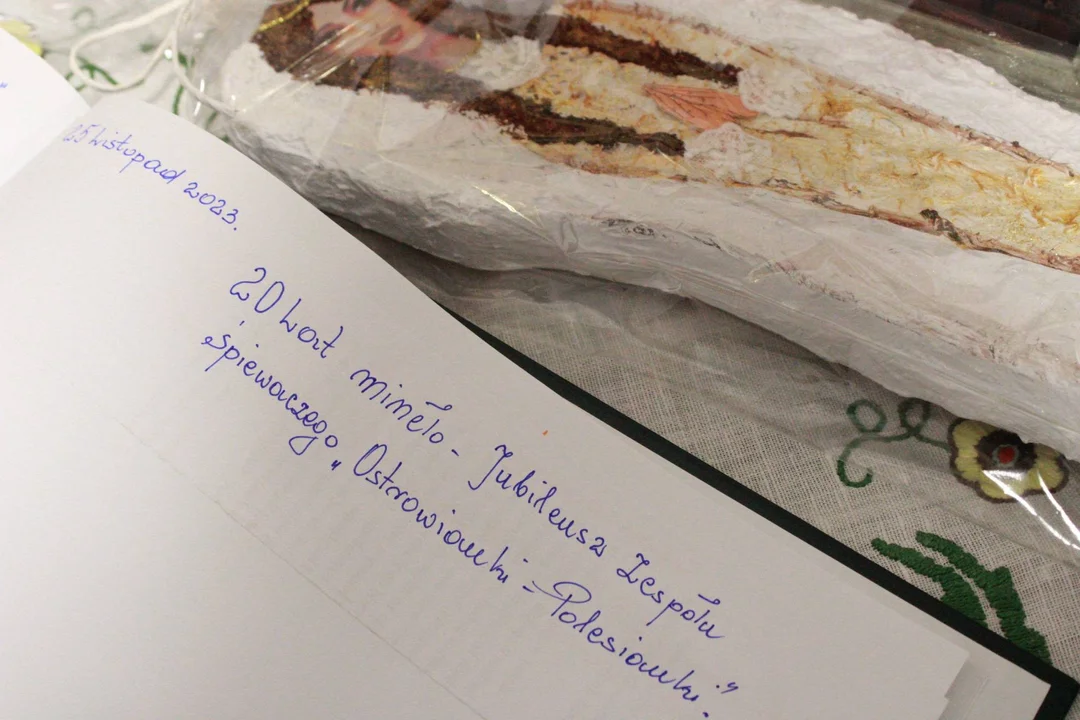 25 Listopad 2023.
20 Lat minęło - Jubileusz Zespołu
śpiewaczego „Ostrowianki - Polesianki."